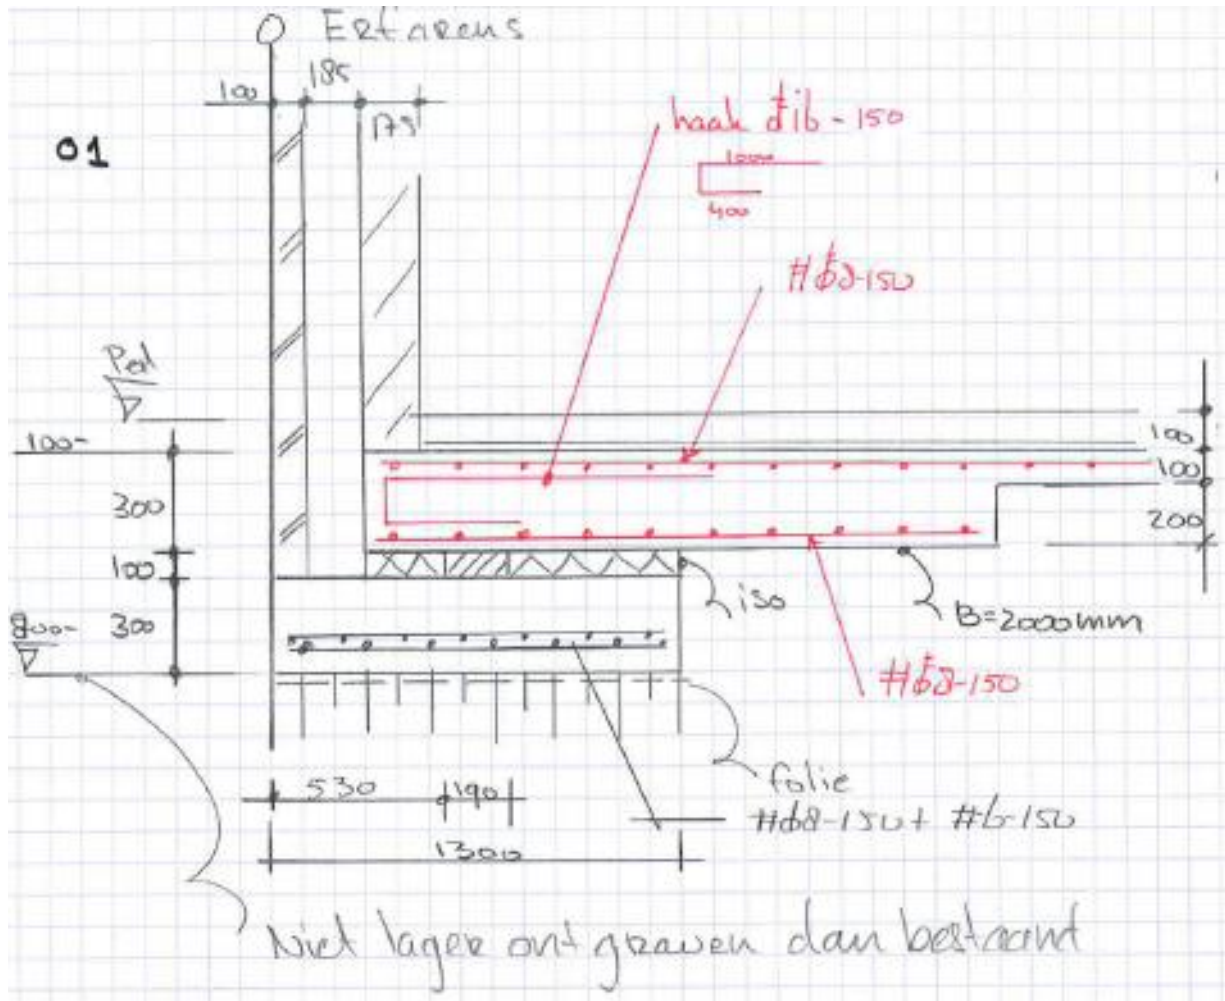 Erfgrens
185
100
175
01
haak ϕ16-150
1000
400
#ϕ8-150
Peil
100-
100
100
300
200
100
300
800-
iso
B=2000mm
#ϕ8-150
folie
530
190
#ϕ8-150 + #6-150
1300
Niet lager ontgraven dan bestaand